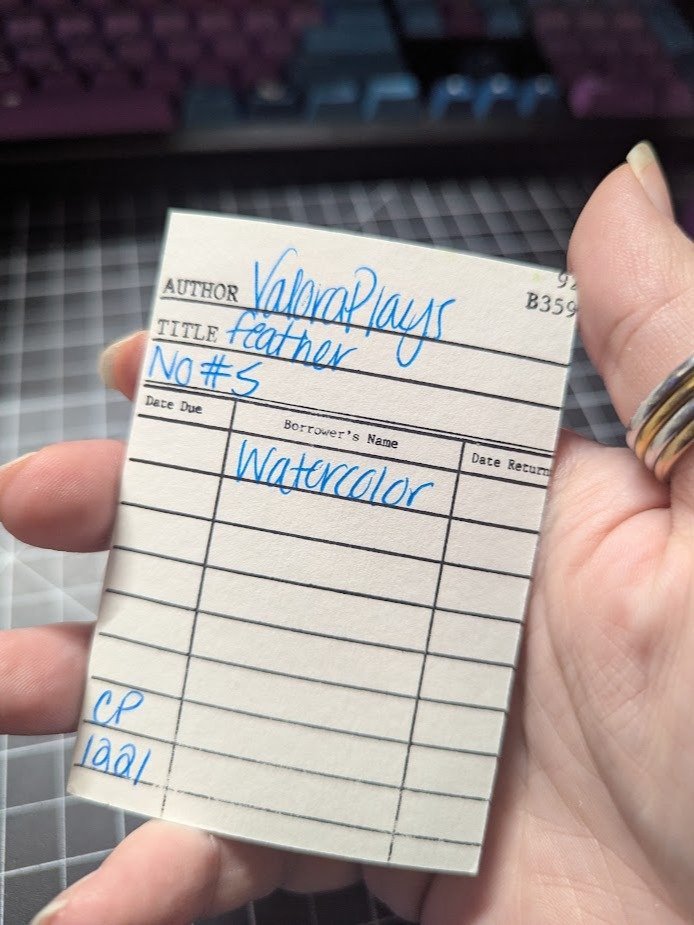 92
B359
AUTHOR ValoraPlays
TITLE feather
NO #5
Date Due Borrower's Name Date Return
Watercolor
CP
1221